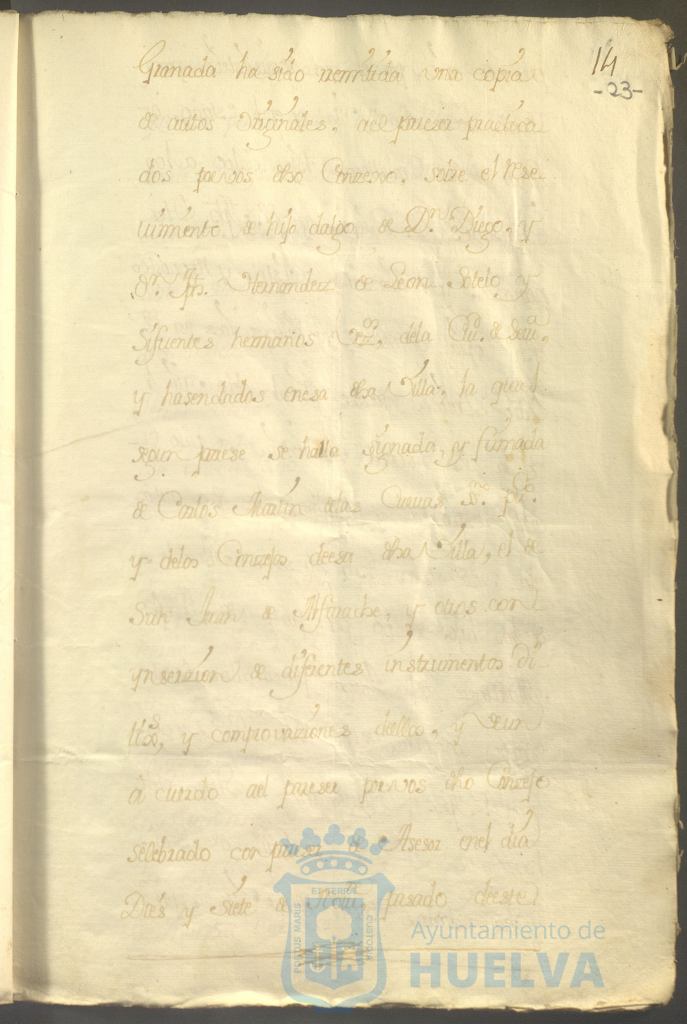 14
-23-
Granada ha sido remitida una copia
de autos originales, ael pareser practica
dos por vos dho Conzexo, sobre el reze
uimiento de hijo dalgo de Dn. Diego, y
Dn. Jph. Hernandez de Leon Sotelo y
Sifuentes hermanos vezos. dela Ciu. de Seuia.
y hasendados enesa dha Villa, la qual
segun parese se halla signada, y firmada
de Carlos Martin delas Cueuas, ssno. pco.
y delos Conzejos deesa dha Villa, el de
San Juan de Alfarache, y otros con
ynserzion de diferentes instrumentos
y comprovaziones dellos, y de un
acuerdo ael pareser por vos dho Conzejo
selebrado con pareser de Asesor enel dia
Dies y Siete de pasado deeste
Ayuntamiento de
HUELVA
PORTUS MARIS
ET TERRE
CUSTODIA